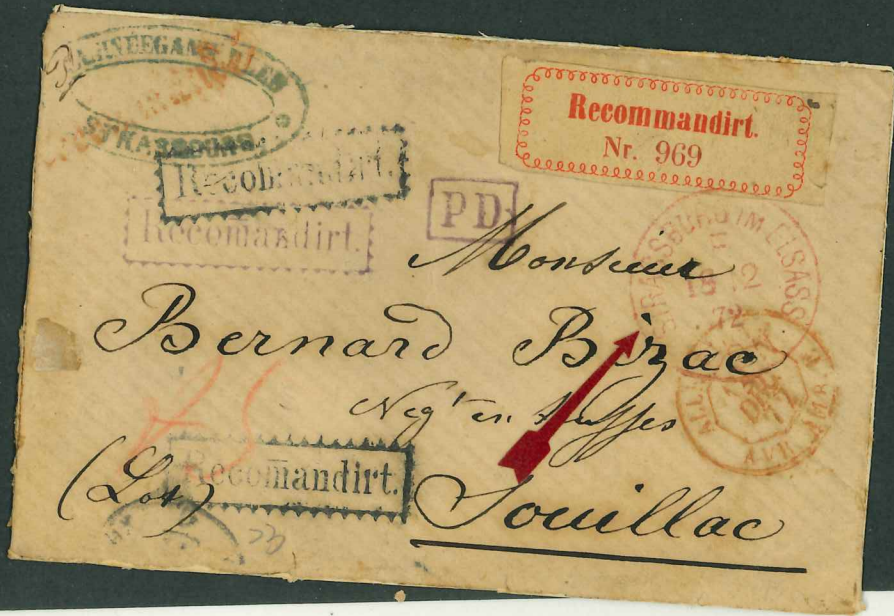 STRASSBURG
Recommandirt.
Nr. 969
Recomandirt.
Recomandirt.
PD
STRASSBURG IM ELSASS
12
72
Monsieur
Bernard Bizac
Negt en truffes
Recomandirt.
(Lot)
Souillac